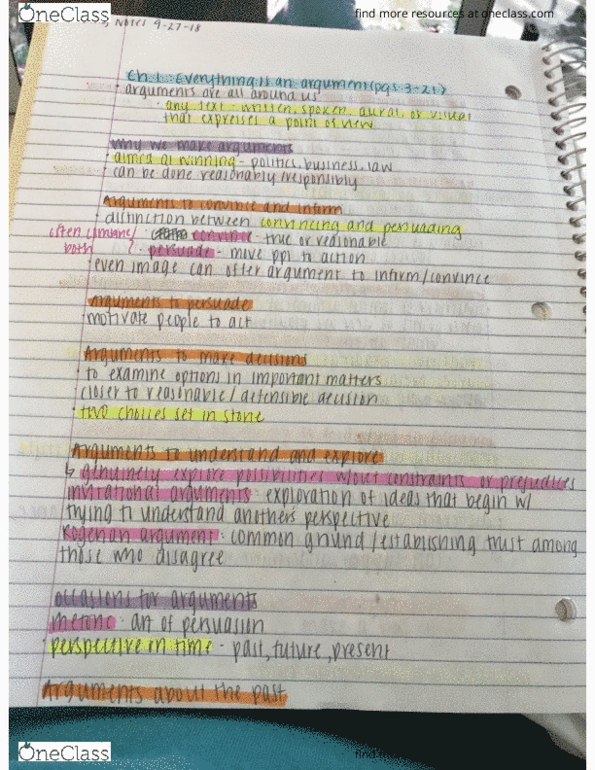 OneClass
find more resources at oneclass.com
Notes 9-27-18
Ch. 1: Everything is an argument (pgs 3-21)
· arguments are all around us
· any text - written, spoken, aural, or visual
that expresses a point of view
why we make arguments
· aimed at winning - politics, business, law
· can be done reasonably/responsibly
Arguments to convince and inform
· distinction between convincing and persuading
often combine/ · convince - true or reasonable
both · persuade - move ppl to action
· even image can offer argument to inform/convince
Arguments to persuade
· motivate people to act
Arguments to make decisions
· to examine options in important matters
· closer to reasonable/defensible decision
· two choices set in stone
Arguments to understand and explore
↳ genuinely explore possibilities w/out constraints or prejudices
· invitational arguments: exploration of ideas that begin w/
trying to understand another's perspective
· Rogerian argument: common ground/establishing trust among
those who disagree
occasions for arguments
· rhetoric - art of persuasion
· perspective on time - past, future, present
Arguments about the past
OneClass
find